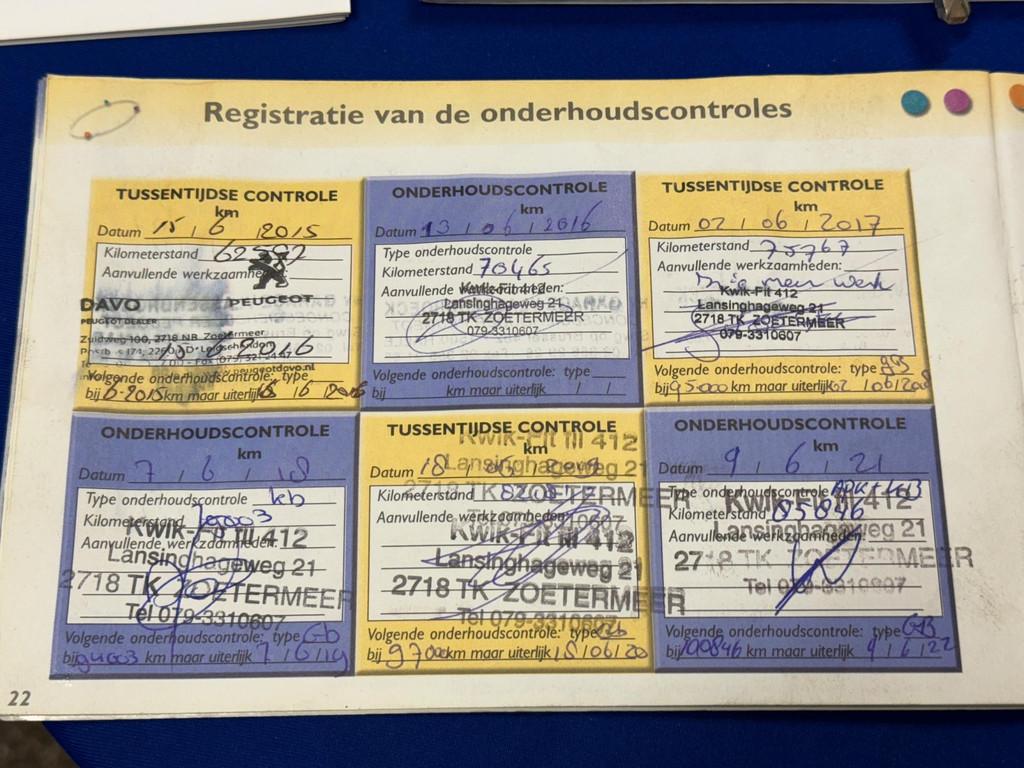 Registratie van de onderhoudscontroles
TUSSENTIJDSE CONTROLE
km
Datum 15 / 6 / 2015
Kilometerstand 62592
Aanvullende werkzaamhe
DAVO PEUGEOT
PEUGEOT DEALER
Zuidweg 100, 2718 NR Zoetermeer
Volgende onderhoudscontrole: type
km maar uiterlijk
ONDERHOUDSCONTROLE
km
Datum 13 / 06 / 2016
Type onderhoudscontrole
Kilometerstand 70465
Aanvullende werkzaamheden:
Kwik-Fit 412
Lansinghageweg 21
2718 TK ZOETERMEER
079-3310607
Volgende onderhoudscontrole: type
bij km maar uiterlijk / /
TUSSENTIJDSE CONTROLE
km
Datum 02 / 06 / 2017
Kilometerstand 75767
Aanvullende werkzaamheden:
Kwik-Fit 412
Lansinghageweg 21
2718 TK ZOETERMEER
079-3310607
Volgende onderhoudscontrole: type
bij 95000 km maar uiterlijk 02 / 06 /
ONDERHOUDSCONTROLE
km
Datum 7 / 6 / 18
Type onderhoudscontrole kb
Kilometerstand
Aanvullende werkzaamheden:
Kwik-Fit III 412
Lansinghageweg 21
2718 TK ZOETERMEER
Tel 079-3310607
Volgende onderhoudscontrole: type Gb
bij 94003 km maar uiterlijk 7 / 6 / 19
TUSSENTIJDSE CONTROLE
km
Datum 18 / 06 /
Kilometerstand
Aanvullende werkzaamheden:
Kwik-Fit III 412
Lansinghageweg 21
2718 TK ZOETERMEER
Tel 079-3310607
Kwik-Fit III 412
Lansinghageweg 21
2718 TK ZOETERMEER
Tel 079-3310607
Volgende onderhoudscontrole: type
bij 97000 km maar uiterlijk 18 / 06 / 20
ONDERHOUDSCONTROLE
km
Datum 9 / 6 / 21
Type onderhoudscontrole APK + KB
Kilometerstand 85846
Aanvullende werkzaamheden:
Kwik-Fit III 412
Lansinghageweg 21
2718 TK ZOETERMEER
Tel 079-3310607
Volgende onderhoudscontrole: type GB
bij 100846 km maar uiterlijk 9 / 6 / 22
22